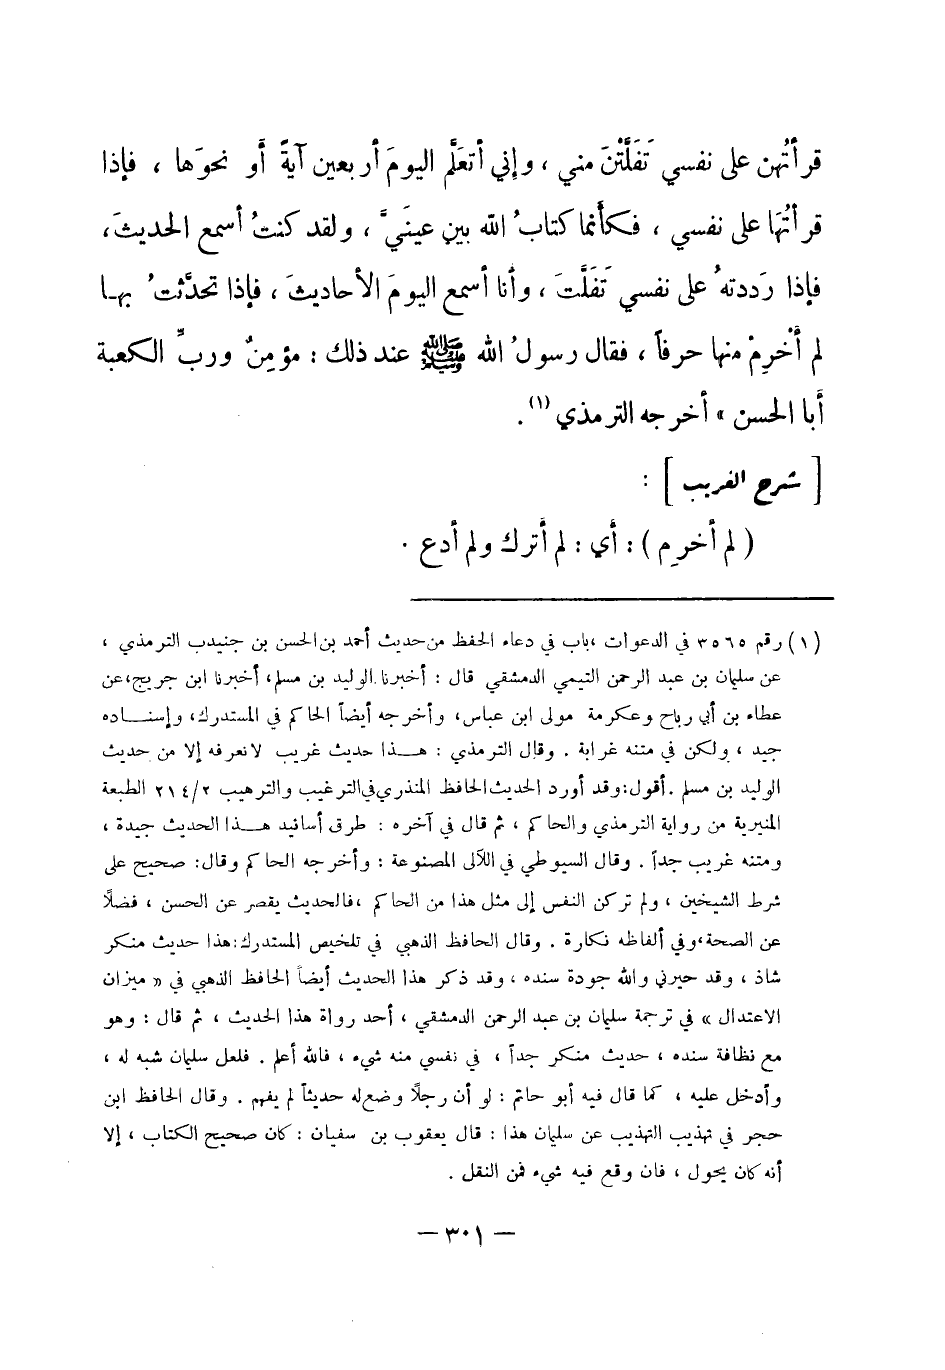 قرأتُهن على نفسي تَفَلَّتْنَ مني ، وإني أتعَلَّم اليومَ أربعين آيةً أَو نحوَها ، فإذا
قرأتُهَا على نفسي ، فكأَنما كتابُ الله بين عينَيَّ ، ولقد كنتُ أسمع الحديثَ ،
فإذا رَددتهُ على نفسي تَفَلَّتَ ، وأنا أسمع اليومَ الأحاديثَ ، فإذا تحدَّثتُ بهـا
لم أَخْرِمْ منها حرفاً ، فقال رسولُ الله ﷺ عند ذلك : مؤمِنٌ وربِّ الكعبة
أَبا الحسن » أخرجه الترمذي (١) .
[ شرح الغريب ] :
( لم أخرِم ) : أَي : لم أَترك ولم أدع .
(١) رقم ٣٥٦٥ في الدعوات ،باب في دعاء الحفظ من حديث أحمد بن الحسن بن جنيدب الترمذي ،
عن سليمان بن عبد الرحمن التيمي الدمشقي قال : أخبرنا الوليد بن مسلم، أخبرنا ابن جريج،عن
عطاء بن أبي رباح وعكرمة مولى ابن عباس، وأخرجه أيضاً الحاكم في المستدرك، وإسنـــاده
جيد ، ولكن في متنه غرابة . وقال الترمذي : هـــذا حديث غريب لانعرفه إلا من حديث
الوليد بن مسلم .أقول:وقد أورد الحديث الحافظ المنذري في الترغيب والترهيب ٢١٤/٢ الطبعة
المنيرية من رواية الترمذي والحاكم ، ثم قال في آخره : طرق أسانيد هـــذا الحديث جيدة ،
ومتنه غريب جداً . وقال السيوطي في اللآلي المصنوعة : وأخرجه الحاكم وقال: صحيح على
شرط الشيخين ، ولم تركن النفس إلى مثل هذا من الحاكم ،فالحديث يقصر عن الحسن ، فضلًا
عن الصحة،وفي ألفاظه نكارة . وقال الحافظ الذهبي في تلخيص المستدرك:هذا حديث منكر
شاذ ، وقد حيرني والله جودة سنده ، وقد ذكر هذا الحديث أيضاً الحافظ الذهبي في « ميزان
الاعتدال » في ترجمة سليمان بن عبد الرحمن الدمشقي ، أحد رواة هذا الحديث ، ثم قال : وهو
مع نظافة سنده ، حديث منكر جداً ، في نفسي منه شيء ، فالله أعلم . فلعل سليمان شبه له ،
وأدخل عليه ، كما قال فيه أبو حاتم : لو أن رجلًا وضع له حديثاً لم يفهم . وقال الحافظ ابن
حجر في تهذيب التهذيب عن سليمان هذا : قال يعقوب بن سفيان : كان صحيح الكتاب ، إلا
أنه كان يحول ، فان وقع فيه شيء فمن النقل .
— ٣٠١ —